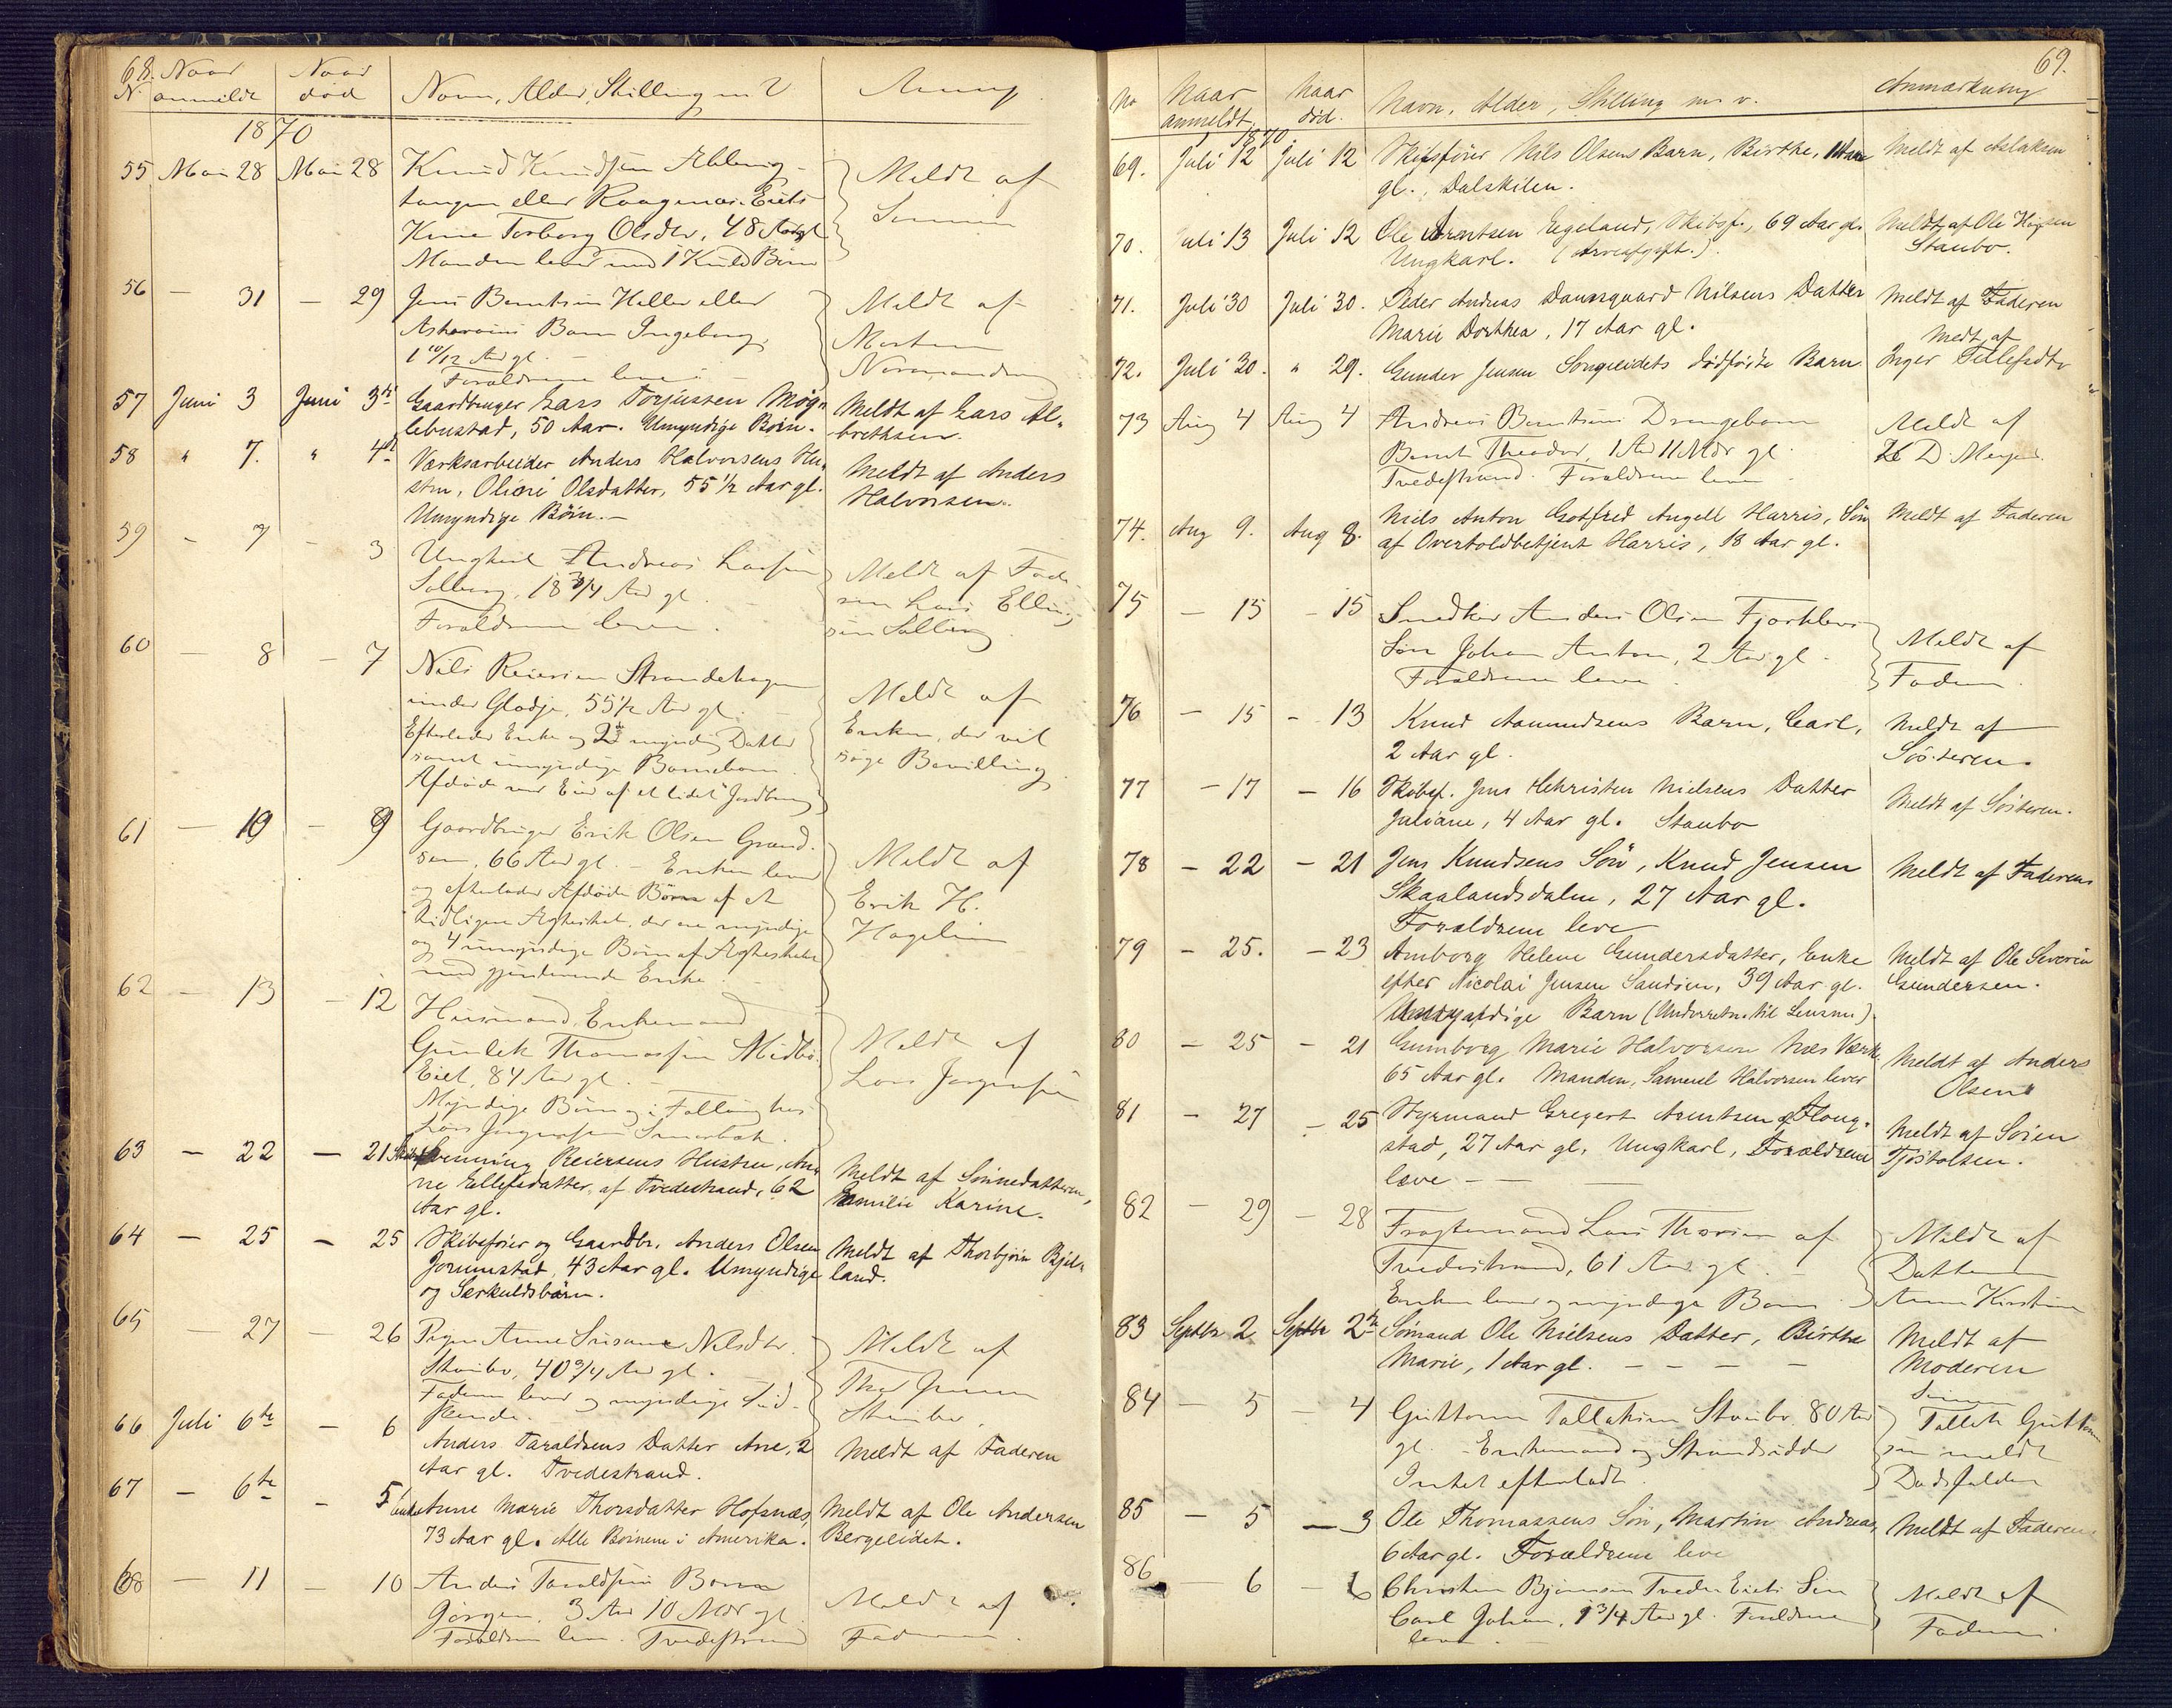 68.
N Naar anmeldt Naar død Navn, Alder, Stilling m V Anmf.
1870
55 Mai 28 Mai 28 Knud Knudsen
tangen eller Eiets
Kone Torborg Olsdtr, 48 Aar gl
Manden lever med 1 Kuld Børn
Meldt af
Sønnen
56 — 31 — 29 Jens Berntsen Heller eller
Barn Ingeborg,
1 10/12 Aar gl. —
Forældrene leve
Meldt af
Morten
57 Juni 3 Juni 3di Gaardbruger Lars Torjussen Møg-
lebustad, 50 Aar. Umyndige Børn.
Meldt af Lars Al-
brethsen.
58 " 7. " 4de Værksarbeider Anders Halvorsens Hu-
stru, Oline Olsdatter, 55 1/2 Aar gl.
Umyndige Børn. —
Meldt af Anders
Halvorsen.
59 - 7 - 3 Ungkarl Andreas Larsen
Solberg, 18 3/4 Aar gl.
Forældrene leve.
Meldt af Fade-
ren Lars Elling-
sen Solberg
60 — 8 — 7 Nils Reiersen Strandehagen
under Gladje, 55 1/2 Aar gl. —
Efterlader Enke og myndig Datter
samt umyndige Børnebørn.
Afdøde var Eier af et lidet Jordbrug
Meldt af
Enken, der vil
søge Bevilling.
61 — 10 — 9 Gaardbruger Erik Olsen Grand-
sen, 66 Aar gl. — Enken lever
og efterlader Afdøde Børn af et
tidligere Ægteskab, der ere myndige
og 4 umyndige Børn af Ægteskabet
med gjenlevende Enke.
Meldt af
Erik H.
Hagelin
62 — 13 — 12 Huusmand, Enkemand
Gunlek Thomassen Midbø
Eiet, 84 Aar gl. —
Myndige Børn og i Fellig hos
Lars Jørgensen
Meldt af
Lars Jørgensen
63 — 22 — 21 Svenning Reiersens Hustru, An-
ne Ellefsdatter, af Tvedestrand, 62
Aar gl.
Meldt af Sønnedatteren,
Emilie Karine.
64 — 25 — 25 Skibsfører og Gaardbr. Anders Olsen
Jorunstad, 43 Aar gl. Umyndige
og Særkuldsbørn.
Meldt af Thorbjørn Bjel-
land.
65 — 27 — 26 Pigen Anne Susanne Nilsdtr.
Staubo, 40 3/4 Aar gl. —
Faderen lever og myndige Sød-
skende.
Meldt af
Thor Jensen
Staubo.
66 Juli 6te — 6 Anders Taraldsens Datter Ane, 2
Aar gl. Tvedestrand.
Meldt af Faderen
67 — 6te — 5 Enke Anne Marie Thorsdatter Hofsnæs,
73 Aar gl. Alle Børnene i Amerika.
Meldt af Ole Andersen
Bergeeidet.
68 — 11 — 10 Anders Taraldsens Barn
Jørgen, 3 Aar 10 Mdr gl.
Forældrene leve. Tvedestrand
Meldt af
Faderen.
69.
No Naar anmeldt. Naar død. Navn, Alder, Stilling m. v. Anmærkning
1870
69. Juli 12 Juli 12 Skibsfører Nils Olsens Barn, Birthe, 1 Aar
gl., Dalskilen.
Meldt af Aslaksen
70. Juli 13 Juli 12 Ole Arentsen Egeland, Skibsf., 69 Aar gl.
Ungkarl. (Arveafgift.)
Meldt af Ole
Staubo.
71. Juli 30 Juli 30. Peder Andreas Dannegaard Nilsens Datter
Marie Dorthea, 17 Aar gl.
Meldt af Faderen
72. Juli 30. " 29. Gunder Jensen Songeeidets dødfødte Barn
Meldt af
Inger Tellefsdtr
73 Aug 4 Aug 4 Andreas Berntsens Drengebarn
Bernt Theodor, 1 Aar 11 Mdr gl.
Tvedestrand. Forældrene leve
Meldt af
D. Meyer
74. Aug 9. Aug 8. Niels Anton Gotfred Angell Harris, Søn
af Overtoldbetjent Harris, 18 Aar gl.
Meldt af Faderen
75 — 15 — 15 Snedker Anders Olsen
Søn Johan Anton, 2 Aar gl.
Forældrene leve
Meldt af
Faderen.
76 — 15 - 13 Knud Aamundsens Barn, Carl,
2 Aar gl.
Meldt af
Søsteren.
77 — 17 — 16 Skibsf. Jens Christen Nielsens Datter
Juliane, 4 Aar gl. Staubo
Meldt af Søsteren.
78 - 22 — 21 Jens Knudsens Søn, Knud Jensen
Skaalandsdalen, 27 Aar gl.
Forældrene leve
Meldt af Faderen
79 - 25. — 23 Amborg Helene Gundersdatter, Enke
efter Nicolai Jensen Sandøen, 39 Aar gl.
Umyndige Barn (Underretn. til Lensm.).
Meldt af Ole Severin
Gundersen.
80 - 25 - 21 Gunborg Marie Halvorsen Næs Værk.
65 Aar gl. Manden, Samuel Halvorsen lever
Meldt af Anders
Olsen
81 - 27 - 25 Styrmand Gregert Arentsen af Houg-
stad, 27 Aar gl. Ungkarl, Forældrene
leve — —
Meldt af Søren
Tjøstolsen.
82 - 29 - 28 Fragtemand Lars Thorsen af
Tvedestrand, 61 Aar gl. —
Enken lever og myndige Børn
Meldt af
Datteren
Anne Kirstine
83 Septbr 2 Septbr 2den Sømand Ole Nielsens Datter, Birthe
Marie, 1 Aar gl. — — — —
Meldt af
Moderen
84 — 5 — 4 Guttorm Tallaksen Staubo, 80 Aar
gl. — Enkemand og Strandsidder
Intet efterladt.
Sønnen
Tallak Guttorm-
sen meldt
Dødsfaldet
85 — 5 — 3 Ole Thomassens Søn, Martin Andreas,
6 Aar gl. Forældrene leve
Meldt af Faderen
86 — 6 — 6 Christen Bjørnsen Tvede Eiets Søn
Carl Johan, 1 3/4 Aar gl. Forældrene
leve.
Meldt af
Faderen.